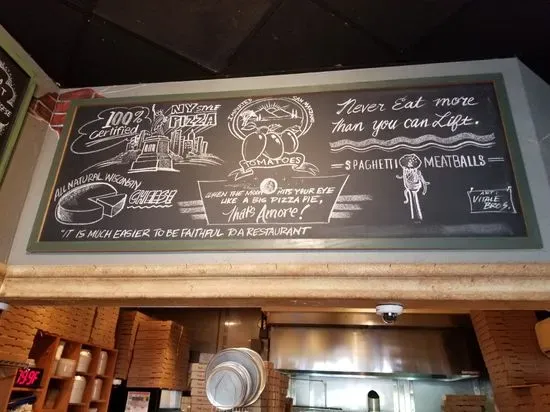 100%
Certified
NY STYLE
PIZZA
IMPORTED
SAN MARZANO
TOMATOES
Never Eat more
Than you can Lift.
SPAGHETTI MEATBALLS
ALL NATURAL WISCONSIN
CHEESE
WHEN THE MOON HITS YOUR EYE
LIKE A BIG PIZZA PIE,
that's Amore!
ART:
VITALE
BROS.
"IT IS MUCH EASIER TO BE FAITHFUL TO A RESTAURANT